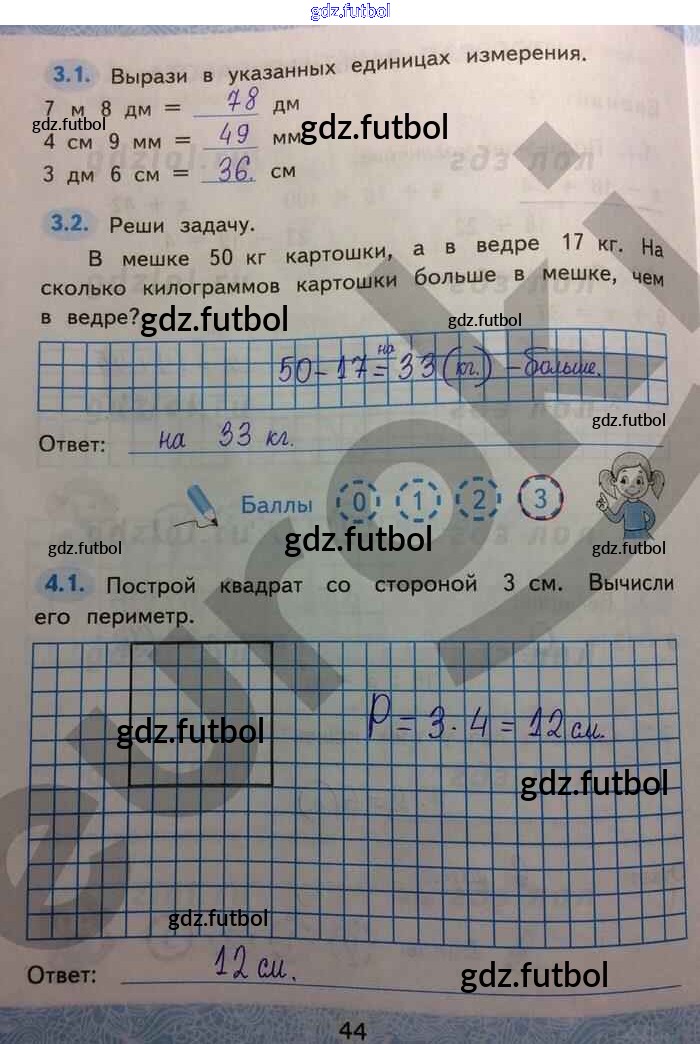 gdz.futbol
3.1. Вырази в указанных единицах измерения.
7 м 8 дм = 78 дм
gdz.futbol
gdz.futbol
4 см 9 мм = 49 мм
3 дм 6 см = 36. см
3.2. Реши задачу.
В мешке 50 кг картошки, а в ведре 17 кг. На
сколько килограммов картошки больше в мешке, чем
в ведре?
gdz.futbol
gdz.futbol
на
50-17=33(кг.) - больше.
gdz.futbol
Ответ: на 33 кг.
Баллы 0 1 2 3
gdz.futbol
gdz.futbol
gdz.futbol
4.1. Построй квадрат со стороной 3 см. Вычисли
его периметр.
P = 3 · 4 = 12 см.
gdz.futbol
gdz.futbol
gdz.futbol
Ответ: 12 см.
gdz.futbol
44
euroki